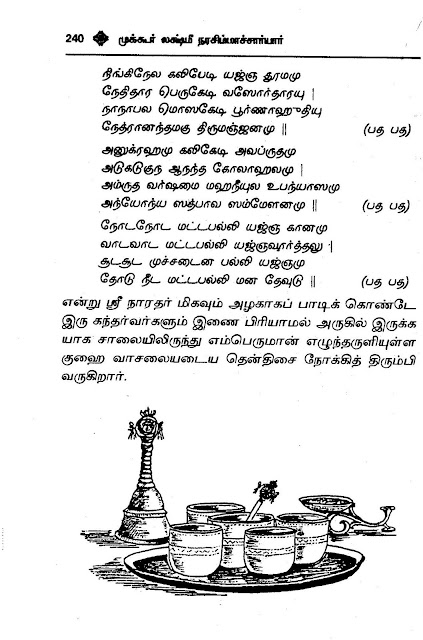 240 முக்கூர் லக்ஷ்மீ நரசிம்மாச்சார்யார்
நிங்கிநேல கலிபேடி யஜ்ஞ தூரமு
நேதிதார பெருகேடி வஸோர்தாரயு |
நாநாபல மொஸகேடி பூர்ணாஹுதியு
நேத்ரானந்தமகு திருமஞ்ஜனமு || (பத பத)
அனுக்ரஹமு கலிகேடி அவப்ருதமு
அடுகடுகுந ஆனந்த கோலாஹலமு |
அம்ருத வர்ஷமை மஹநீயுல உபந்யாஸமு
அந்யோந்ய ஸத்பாவ ஸம்மேளனமு || (பத பத)
நோடநோட மட்டபல்லி யஜ்ஞ கானமு
வாடவாட மட்டபல்லி யஜ்ஞவார்த்தலு |
சூடசூட முச்சடைன பல்லி யஜ்ஞமு
தோடு நீட மட்டபல்லி மன தேவுடு || (பத பத)
என்று ஸ்ரீ நாரதர் மிகவும் அழகாகப் பாடிக் கொண்டே
இரு கந்தர்வர்களும் இணை பிரியாமல் அருகில் இருக்க
யாக சாலையிலிருந்து எம்பெருமான் எழுந்தருளியுள்ள
குஹை வாசலையடைய தென்திசை நோக்கித் திரும்பி
வருகிறார்.